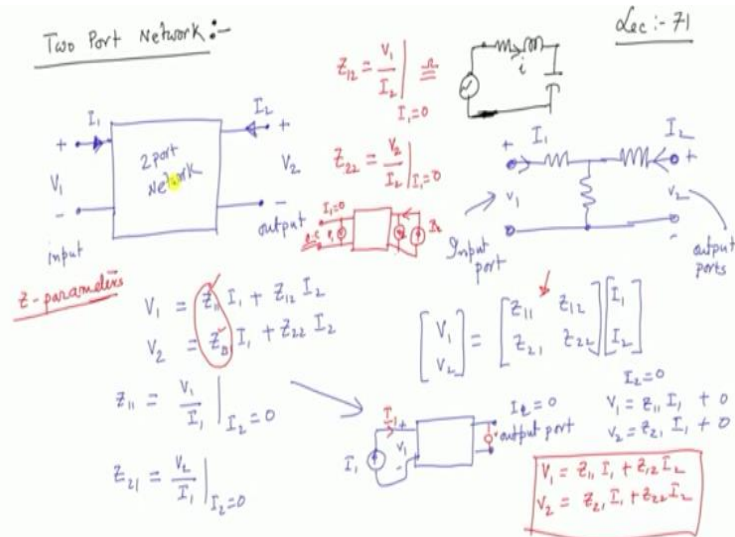 Two Port Network :-
Lec :- 71
Z12 = V1 / I2 | I1=0 Ω
i
I1
I2
+
+
V1
2 port
Network
V2
-
-
input
output
Z22 = V2 / I2 | I1=0
I1=0
I1
I2
+
+
V1
V2
-
Input
port
output
ports
Z-parameters
V1 = Z11 I1 + Z12 I2
V2 = Z21 I1 + Z22 I2
[V1 V2] = [Z11 Z12 Z21 Z22] [I1 I2]
Z11 = V1 / I1 | I2=0
Z21 = V2 / I1 | I2=0
I1
+
V1
-
I2=0
output port
I2=0
V1 = Z11 I1 + 0
V2 = Z21 I1 + 0
V1 = Z11 I1 + Z12 I2
V2 = Z21 I1 + Z22 I2